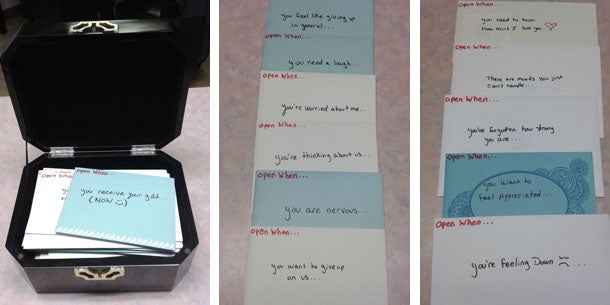 Open When...
you receive your gift...
(NOW ☺)
you feel like giving up
in general...
Open When...
you need a laugh...
Open When...
you're worried about me...
Open When...
you're thinking about us...
Open When...
you are nervous...
Open When...
you want to give up
on us...
you need to know
how much I love you ♡
Open When...
There are moods you just
can't handle...
Open When...
you've forgotten how strong
you are...
Open When...
you want to
feel Appreciated...
Open When...
you're feeling Down ☹...